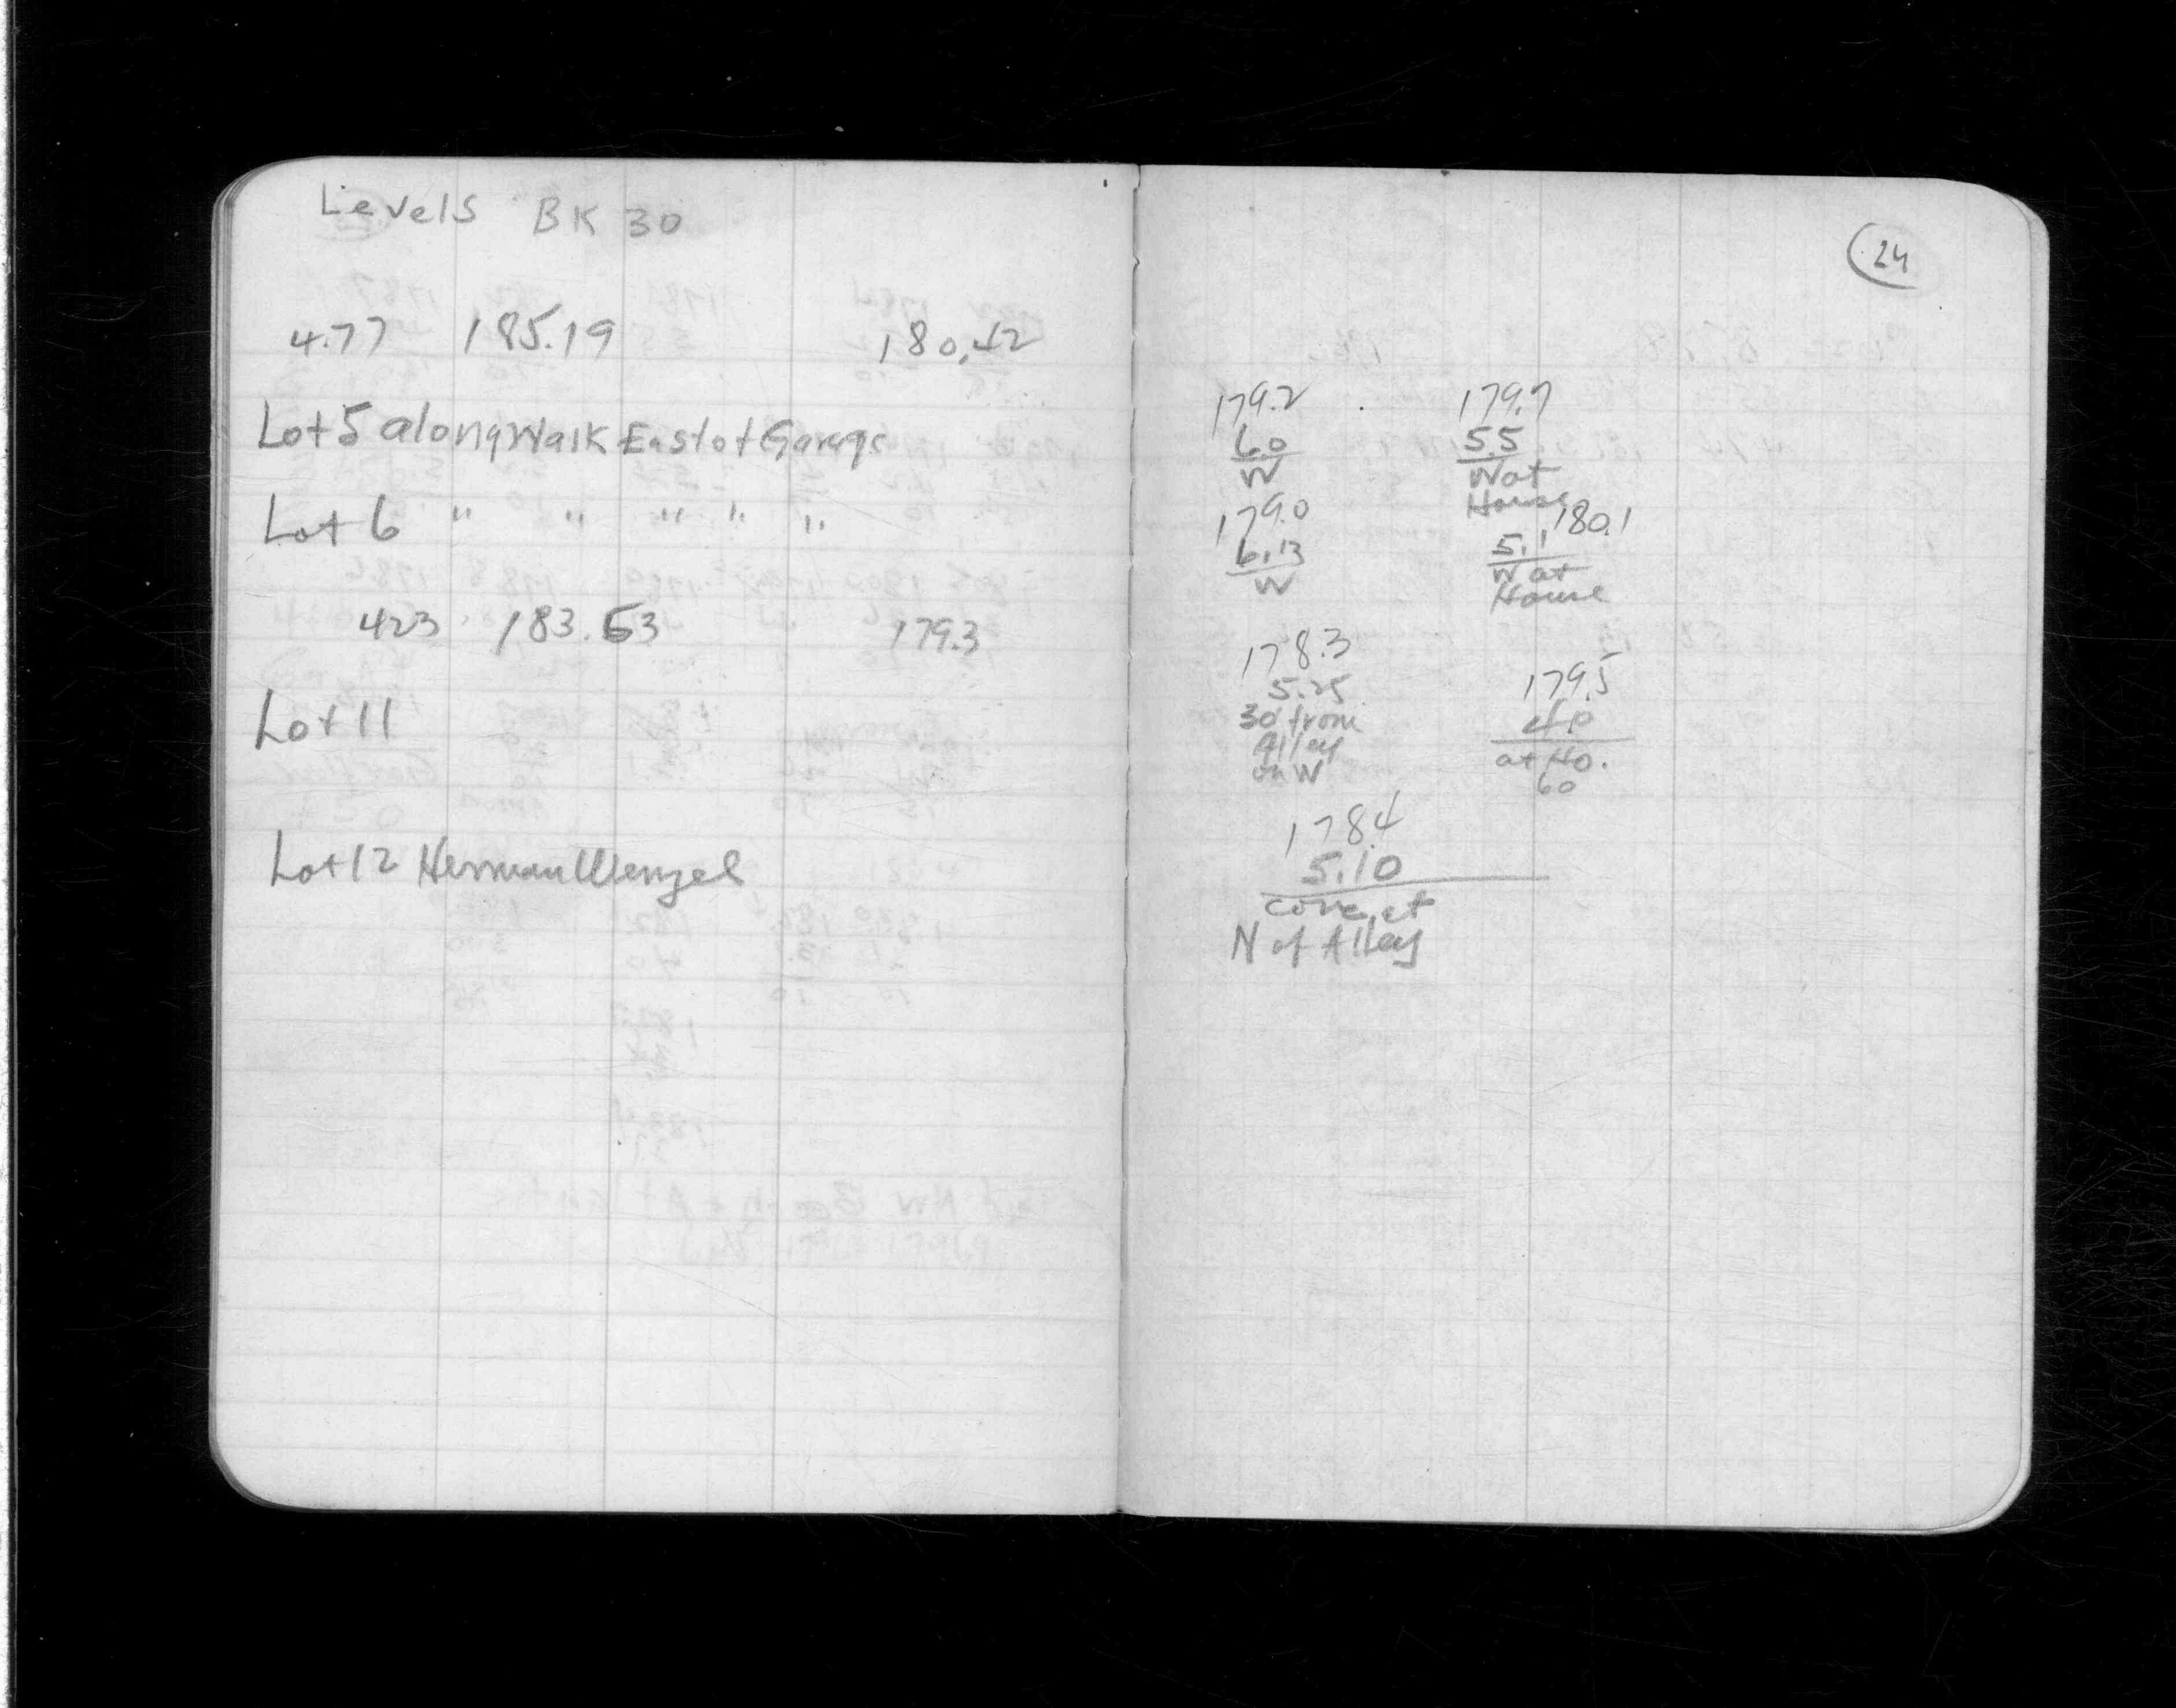 Levels BK 30
4.77 185.19 180.42
Lot 5 along Walk East of Garage
Lot 6 " " " " "
423 183.53 179.3
Lot 11
Lot 12 Herman Wenzel
24
179.2 179.7
6.0 5.5
W W at
House
179.0 180.1
6.13 5.1
W W at
House
178.3 179.5
5.25 4.0
30' from at Ho.
Alley 60
on W
178.4
5.10
conc. at
N of Alley